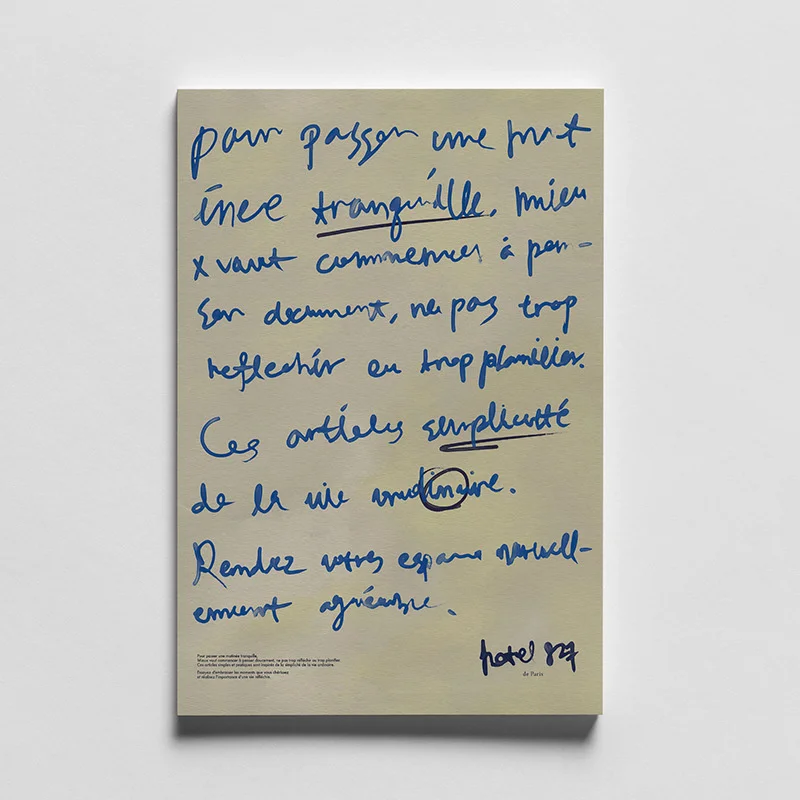 pour passer une mat
inee tranquille, mieu
x vaut commencer à pen-
ser doucement, ne pas trop
reflechir ou trop planifier.
Ces articles simplicité
de la vie
Rendez votres espace
Pour passer une matinée tranquille,
Mieux vaut commencer à penser doucement, ne pas trop réfléchir ou trop planifier.
Ces articles simples et pratiques sont inspirés de la simplicité de la vie ordinaire.
Essayez d'embrasser les moments que vous chérissez
et réalisez l'importance d'une vie réfléchie.
hotel 827
de Paris